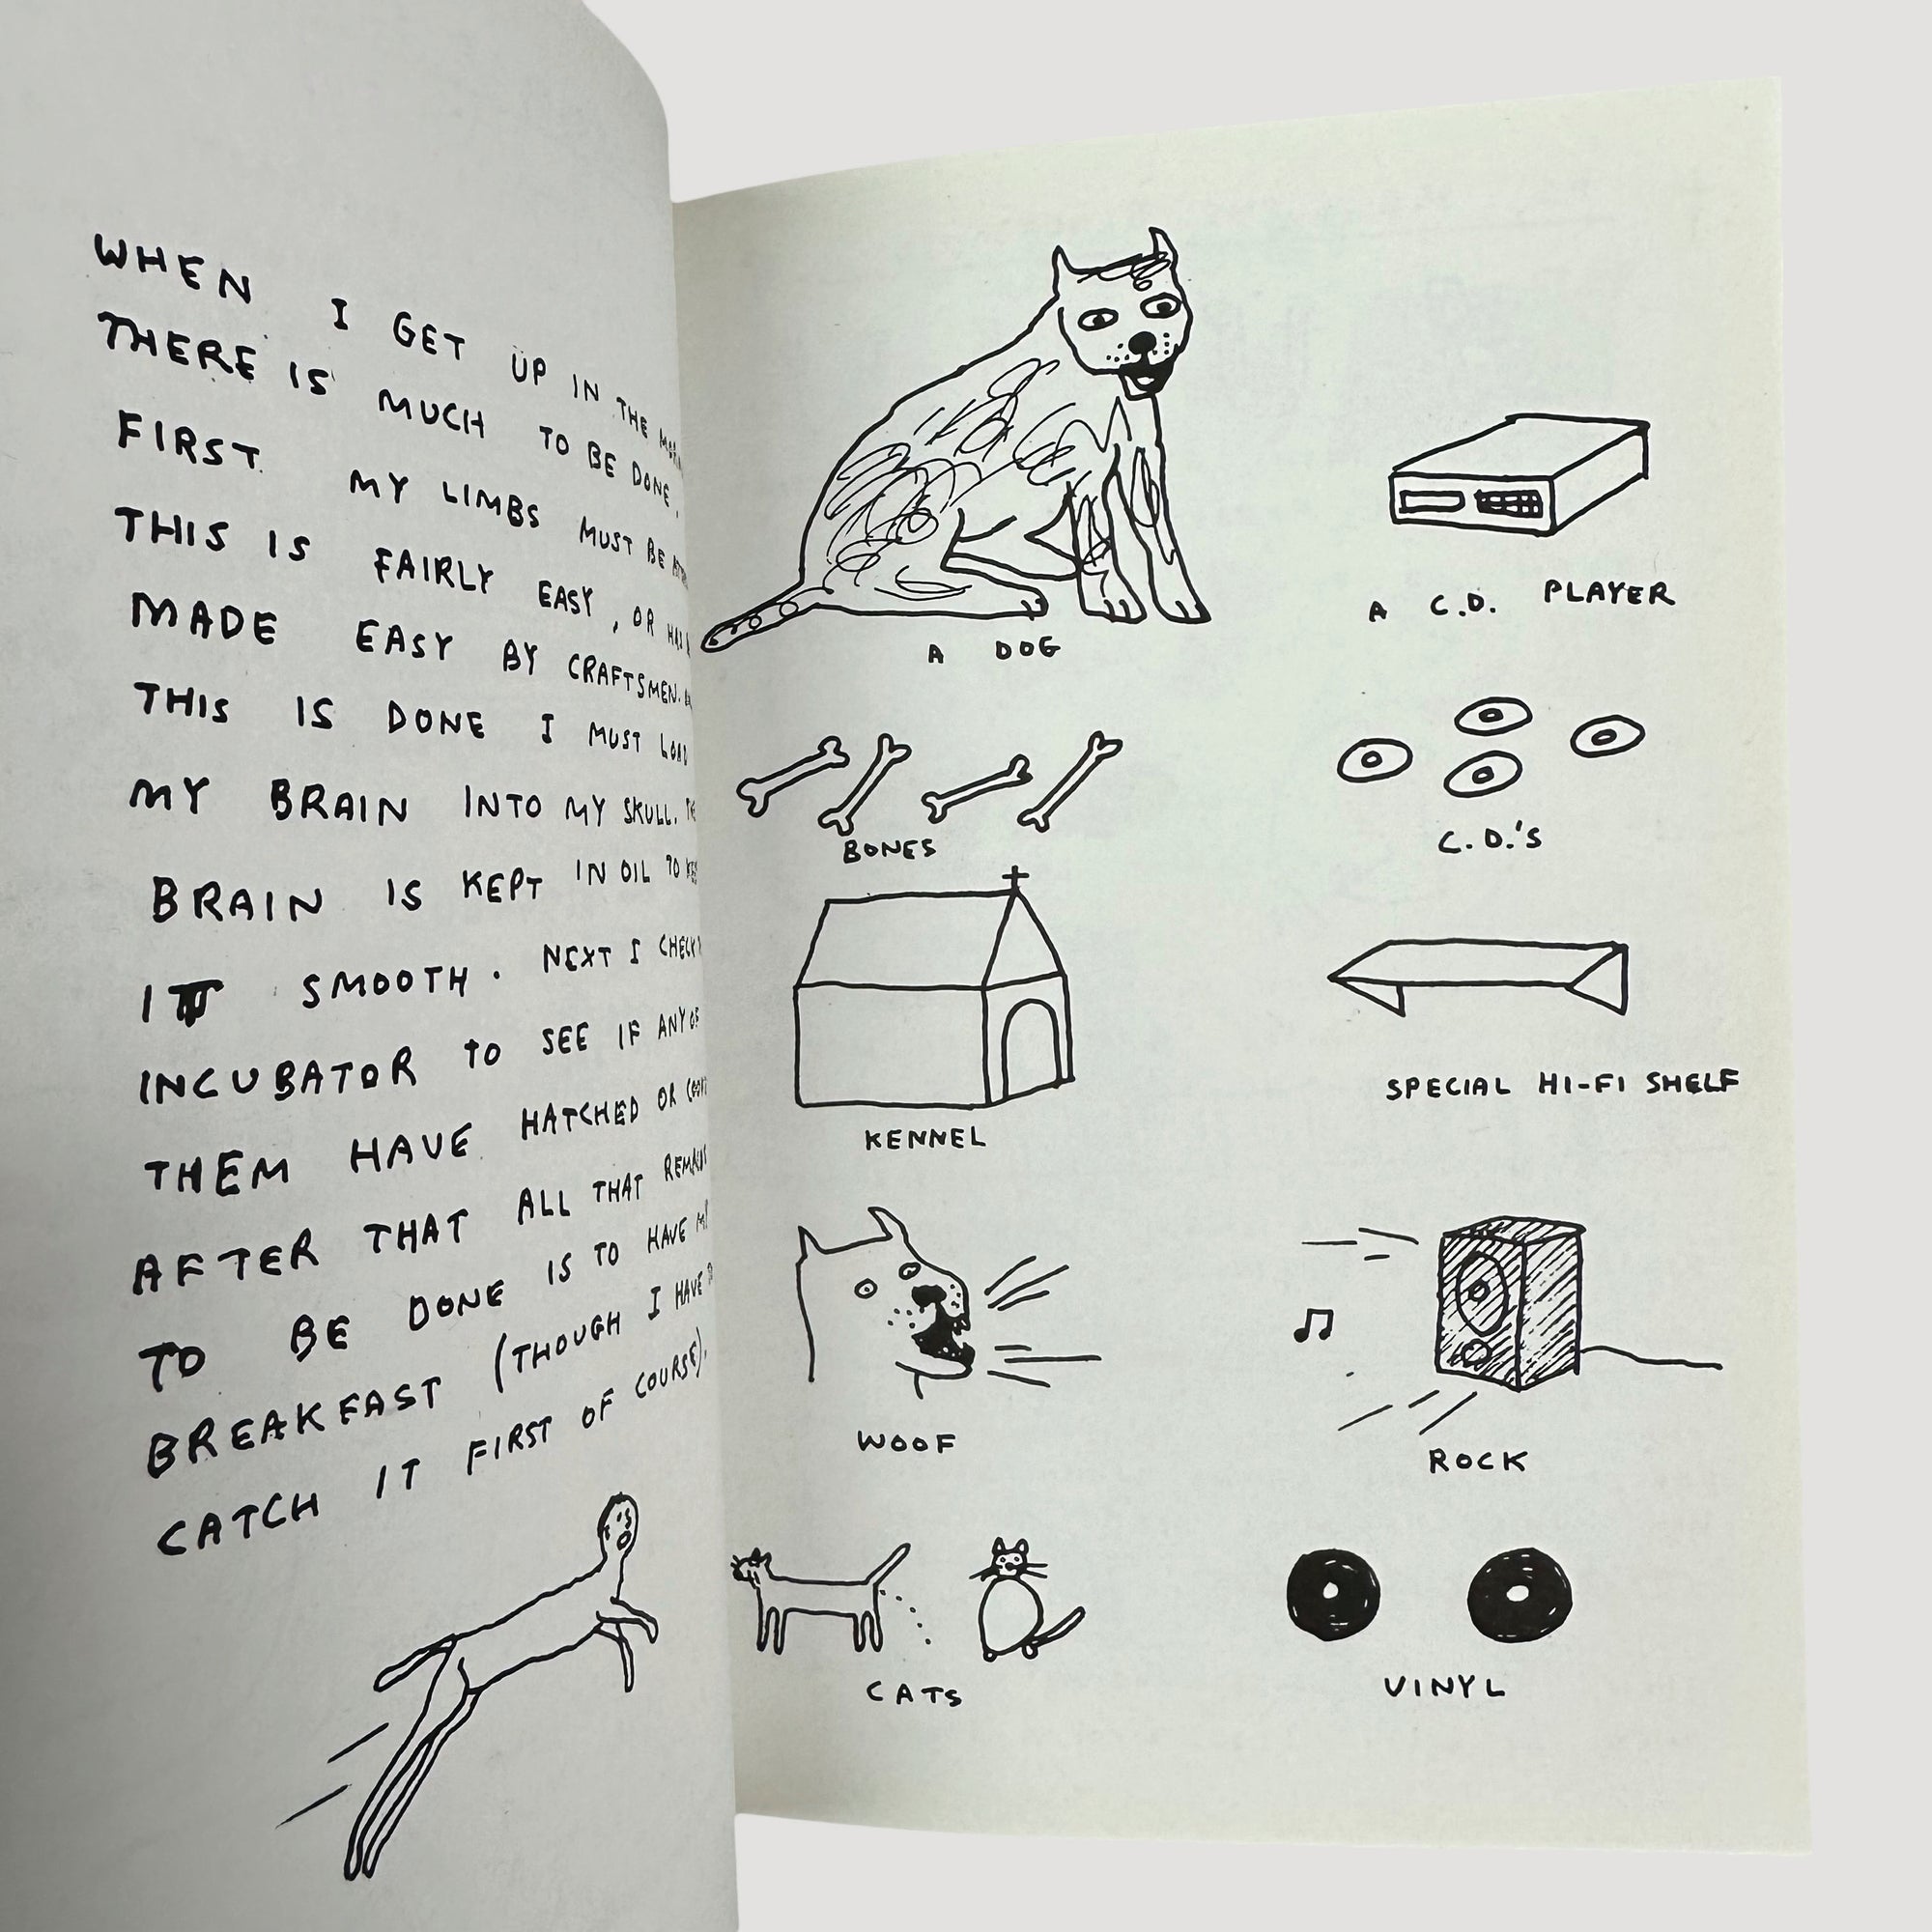 WHEN I GET UP IN THE
THERE IS MUCH TO BE DONE.
FIRST MY LIMBS MUST BE
THIS IS FAIRLY EASY, OR HAS
MADE EASY BY CRAFTSMEN.
THIS IS DONE I MUST LOAD
MY BRAIN INTO MY SKULL.
BRAIN IS KEPT IN OIL TO
IT SMOOTH. NEXT I CHECK
INCUBATOR TO SEE IF ANY OF
THEM HAVE HATCHED OR
AFTER THAT ALL THAT REMAINS
TO BE DONE IS TO HAVE MY
BREAKFAST (THOUGH I HAVE TO
CATCH IT FIRST OF COURSE).
A DOG
A C.D. PLAYER
BONES
C.D.'S
KENNEL
SPECIAL HI-FI SHELF
WOOF
ROCK
CATS
VINYL